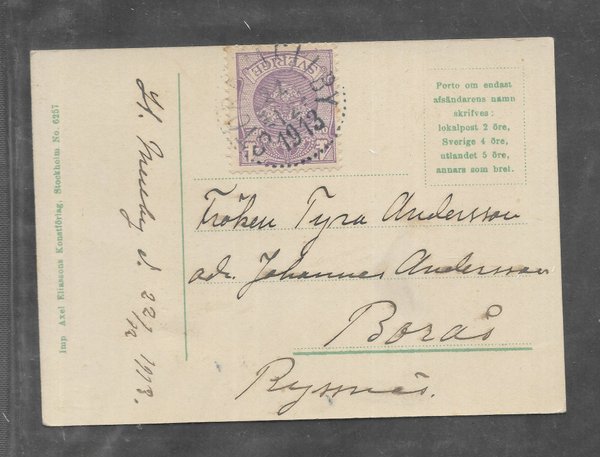 SVERIGE
1913
Porto om endast
afsändarens namn
skrifves:
lokalpost 2 öre,
Sverige 4 öre,
utlandet 5 öre,
annars som bref.
Fröken Tyra Andersson
adr. Johannes Andersson
Borås
Ryssnäs.
d. 22/12 1913.
Imp Axel Eliassons Konstförlag, Stockholm No. 6257